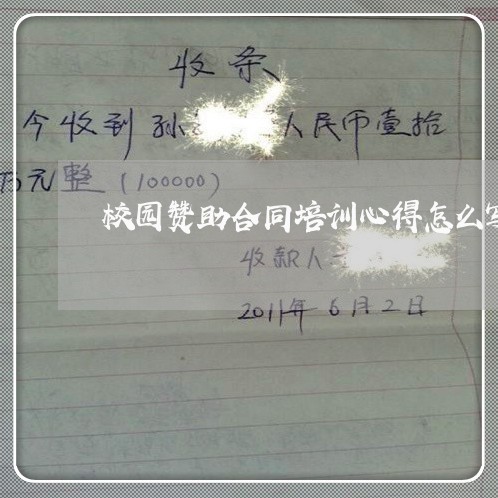 收条
今收到孙 人民币壹拾
万元整(100000)
校园赞助合同培训心得怎么写
收款人
2011年6月2日